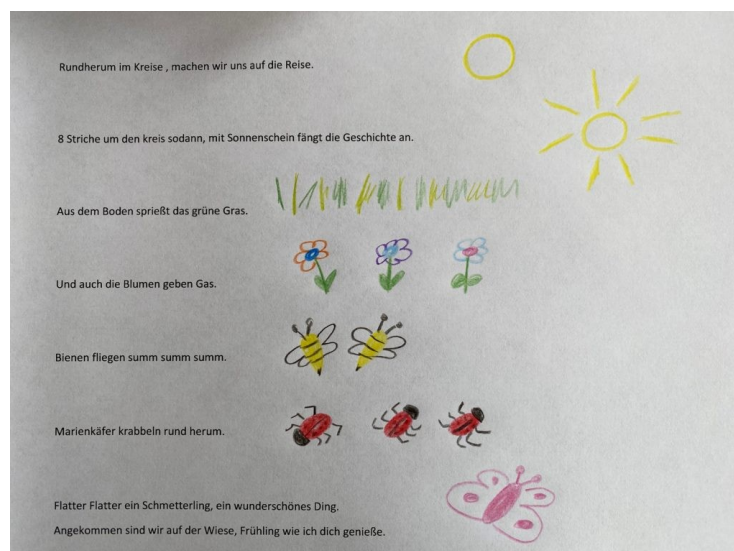 Rundherum im Kreise , machen wir uns auf die Reise.
8 Striche um den kreis sodann, mit Sonnenschein fängt die Geschichte an.
Aus dem Boden sprießt das grüne Gras.
Und auch die Blumen geben Gas.
Bienen fliegen summ summ summ.
Marienkäfer krabbeln rund herum.
Flatter Flatter ein Schmetterling, ein wunderschönes Ding.
Angekommen sind wir auf der Wiese, Frühling wie ich dich genieße.